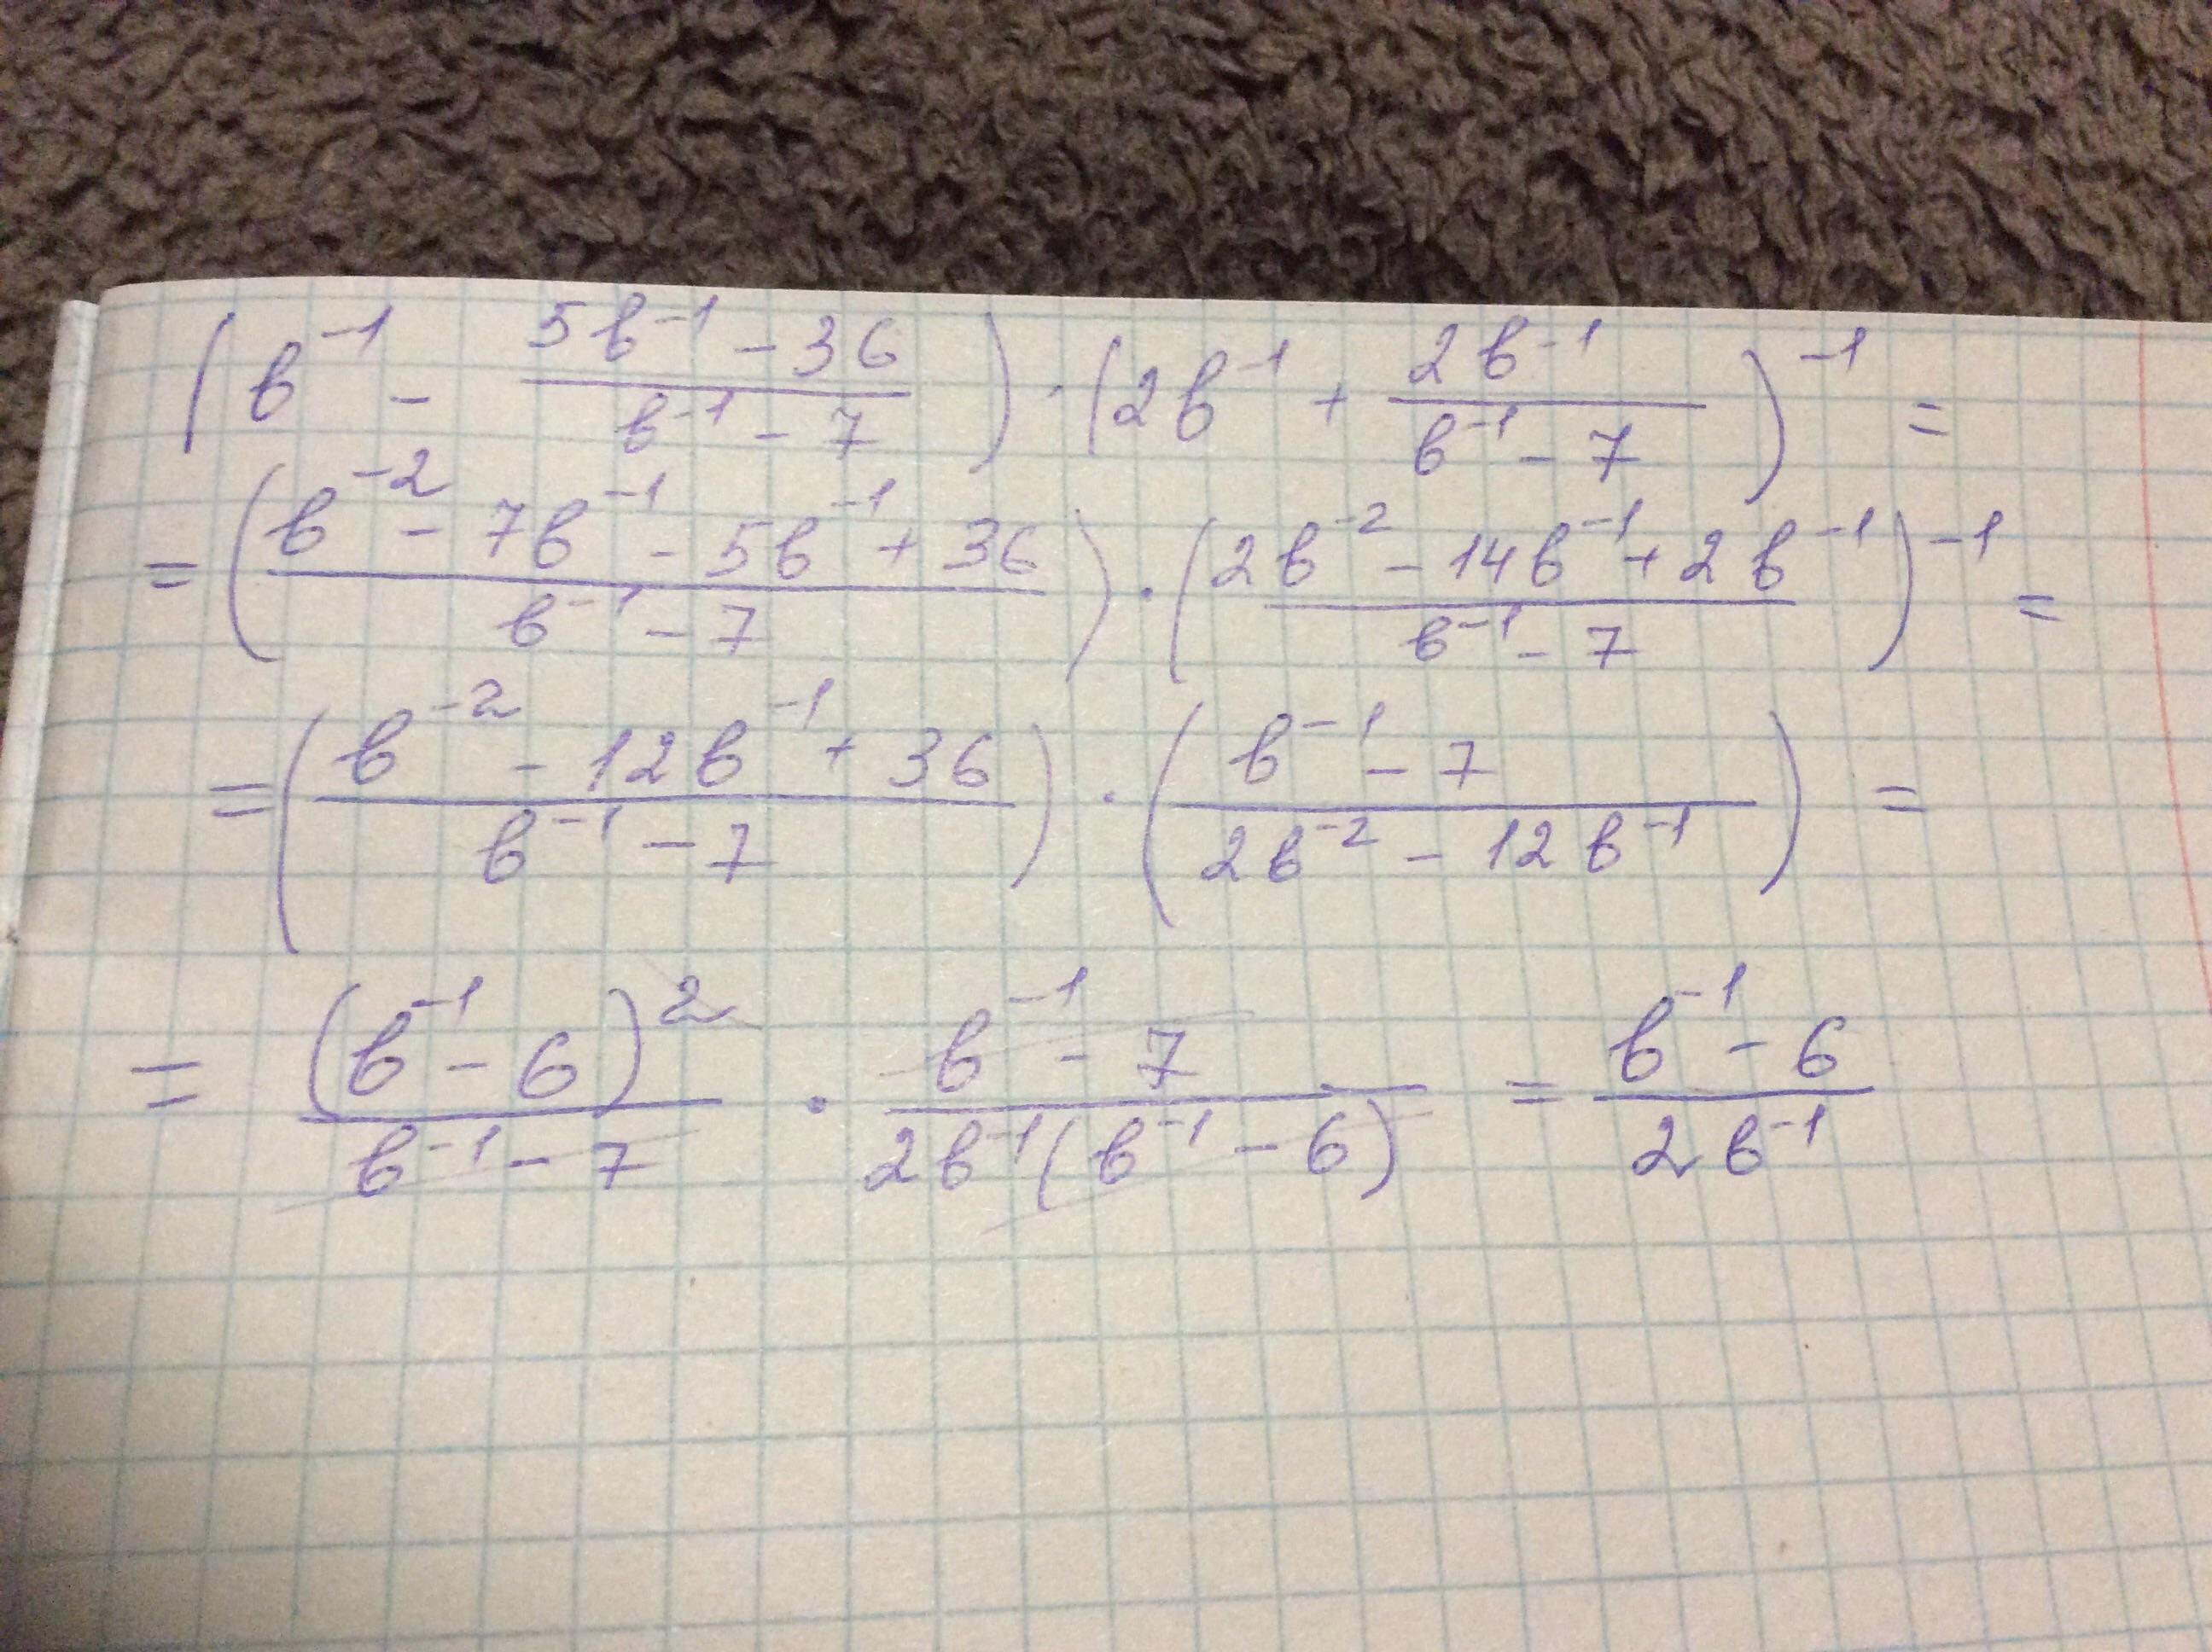 (b⁻¹ - (5b⁻¹ - 36)/(b⁻¹ - 7)) · (2b⁻¹ + 2b⁻¹/(b⁻¹ - 7))⁻¹ =
= ((b⁻² - 7b⁻¹ - 5b⁻¹ + 36)/(b⁻¹ - 7)) · ((2b⁻² - 14b⁻¹ + 2b⁻¹)/(b⁻¹ - 7))⁻¹ =
= ((b⁻² - 12b⁻¹ + 36)/(b⁻¹ - 7)) · ((b⁻¹ - 7)/(2b⁻² - 12b⁻¹)) =
= (b⁻¹ - 6)²/(b⁻¹ - 7) · (b⁻¹ - 7)/(2b⁻¹(b⁻¹ - 6)) = (b⁻¹ - 6)/(2b⁻¹)